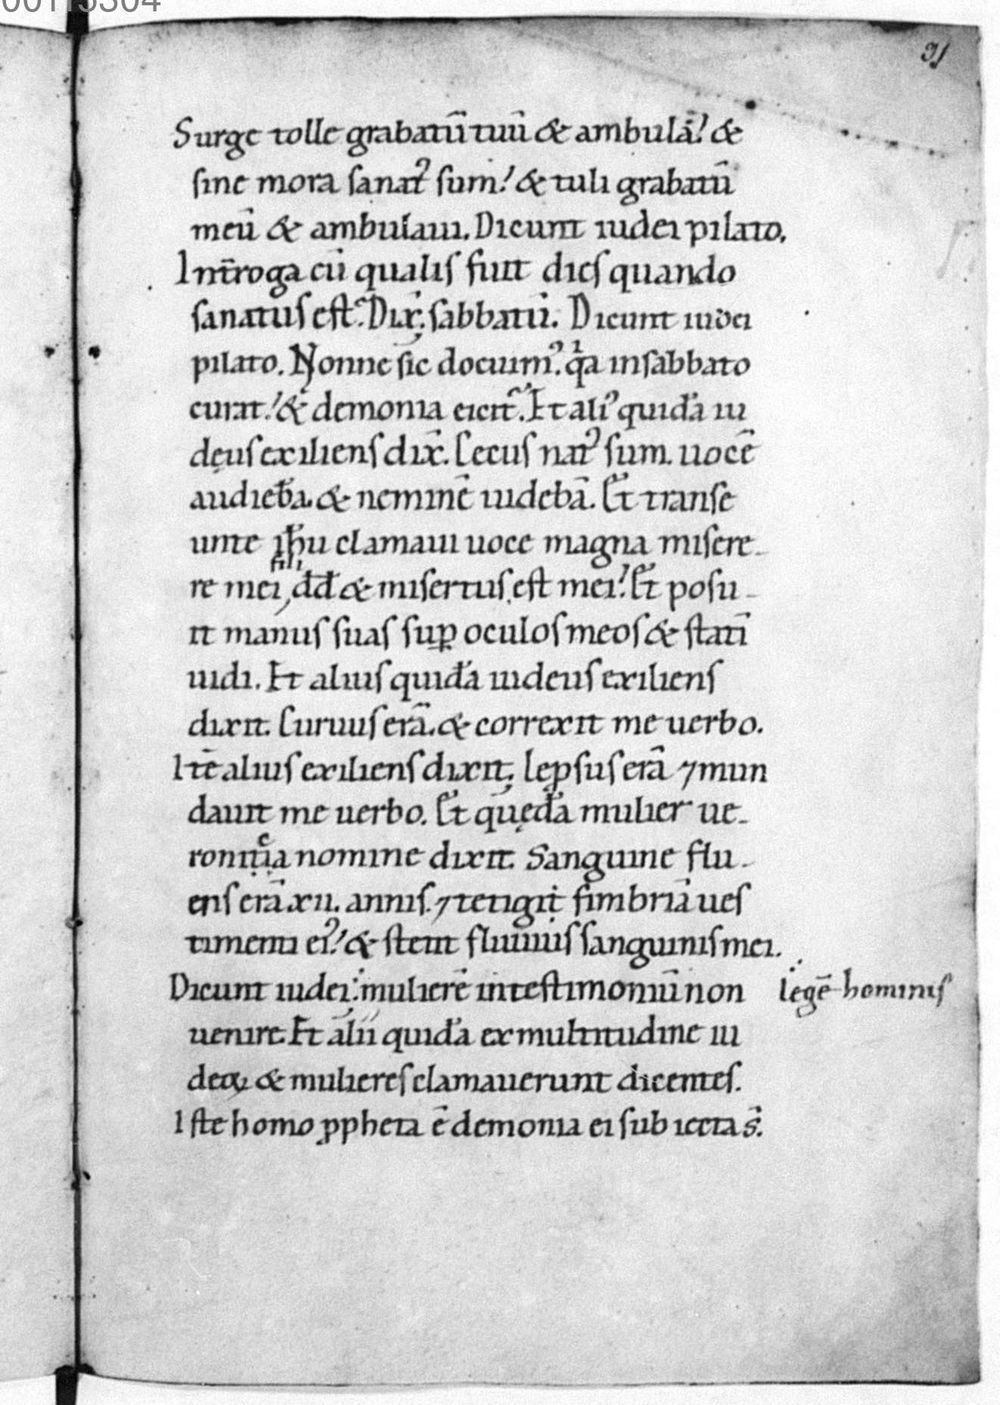 31
Surge tolle grabatū tuū & ambulā! &
sine mora sanat᾿ sum! & tuli grabatū
meū & ambulaui. Dicunt iudei pilato.
Int̄roga cū qualis fuit dies quando
sanatus est. Dix̄. sabbatū. Dicunt iudei
pilato. Nonne sic docuim᾿. qͥa insabbato
curat! & demonia eicit. Et ali᾿ quidā iu
deus exiliens dix̄. Cecus nat᾿ sum. uocē
audiebā. & neminē uidebā. Et transe
unte ihu clamaui uoce magna misere-
re mei fili dđ & misertus est mei! Et posu-
it manus suas sup oculos meos & statī
uidi. Et alius quidā iudeus exiliens
dixit. Curuus erā. & correxit me uerbo.
Itē alius exiliens dixit. Lepsus erā ⁊ mun
dauit me uerbo. Et quędā mulier ue-
ronica nomine dixit. Sanguine flu-
ens erā xii. annis. ⁊ tetigit fimbriā ues
timenti ei᾿! & stetit fluuius sanguinis mei.
Dicunt iudei. mulierē intestimoniū non legē hominis
uenire. Et alii quidā ex multitudine iu
deoꝝ & mulieres clamauerunt dicentes.
Iste homo ꝓpheta ē demonia ei subiecta s̄.